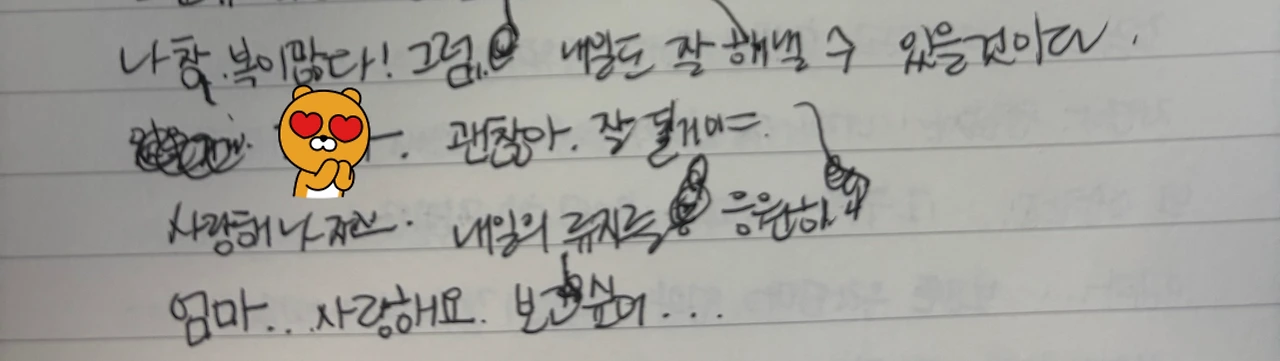 나 참 복이많다! 그럼. 내일도 잘 해낼 수 있을것이다.
괜찮아. 잘 될거야.
사랑해 내일의 응원해
엄마... 사랑해요. 보고싶어...